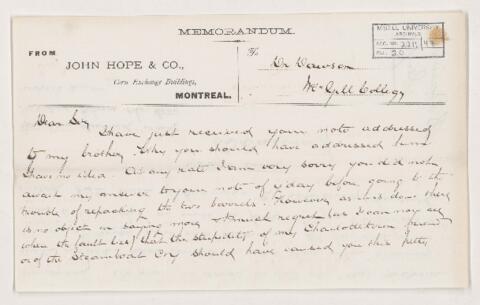 MEMORANDUM.
FROM
JOHN HOPE & CO.,
Corn Exchange Buildings,
MONTREAL.
To
Dr Dawson
McGill College
McGILL UNIVERSITY
ARCHIVES
ACC. NO.
REF.
Dear Sir
I have just received your note addressed
to my brother. Why you should have addressed him
I have no idea. At any rate I am very sorry you did not
await my answer to your note of yday before going to the
trouble of repacking the two barrels. However as it is done there
is no object in saying more. I much regret but I can now see
where the fault lies that the stupidity of my Charlottetown
or of the Steamboat Coy should have caused you this petty